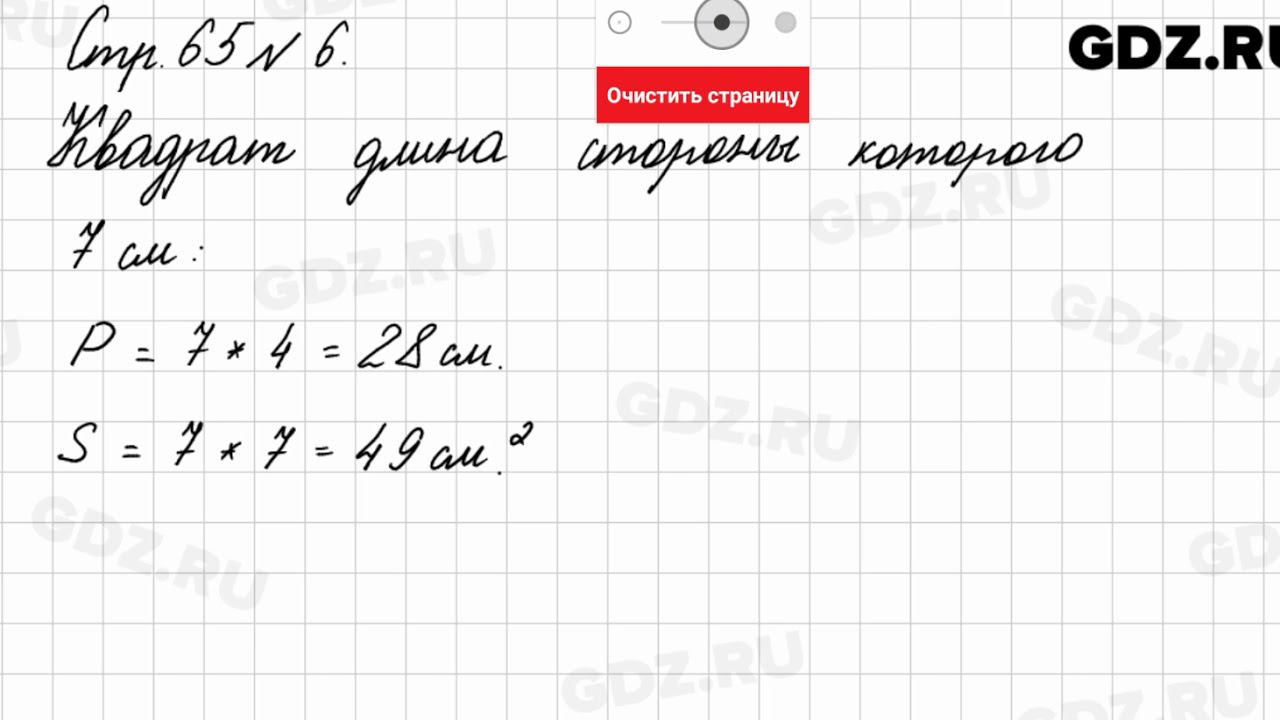 Стр. 65 N 6.
GDZ.RU
Очистить страницу
Квадрат длина стороны которого
7 см :
P = 7 * 4 = 28 см.
S = 7 * 7 = 49 см.²
GDZ.RU
GDZ.RU
GDZ.RU
GDZ.RU
GDZ.RU
GDZ.RU
GDZ.RU
GDZ.RU